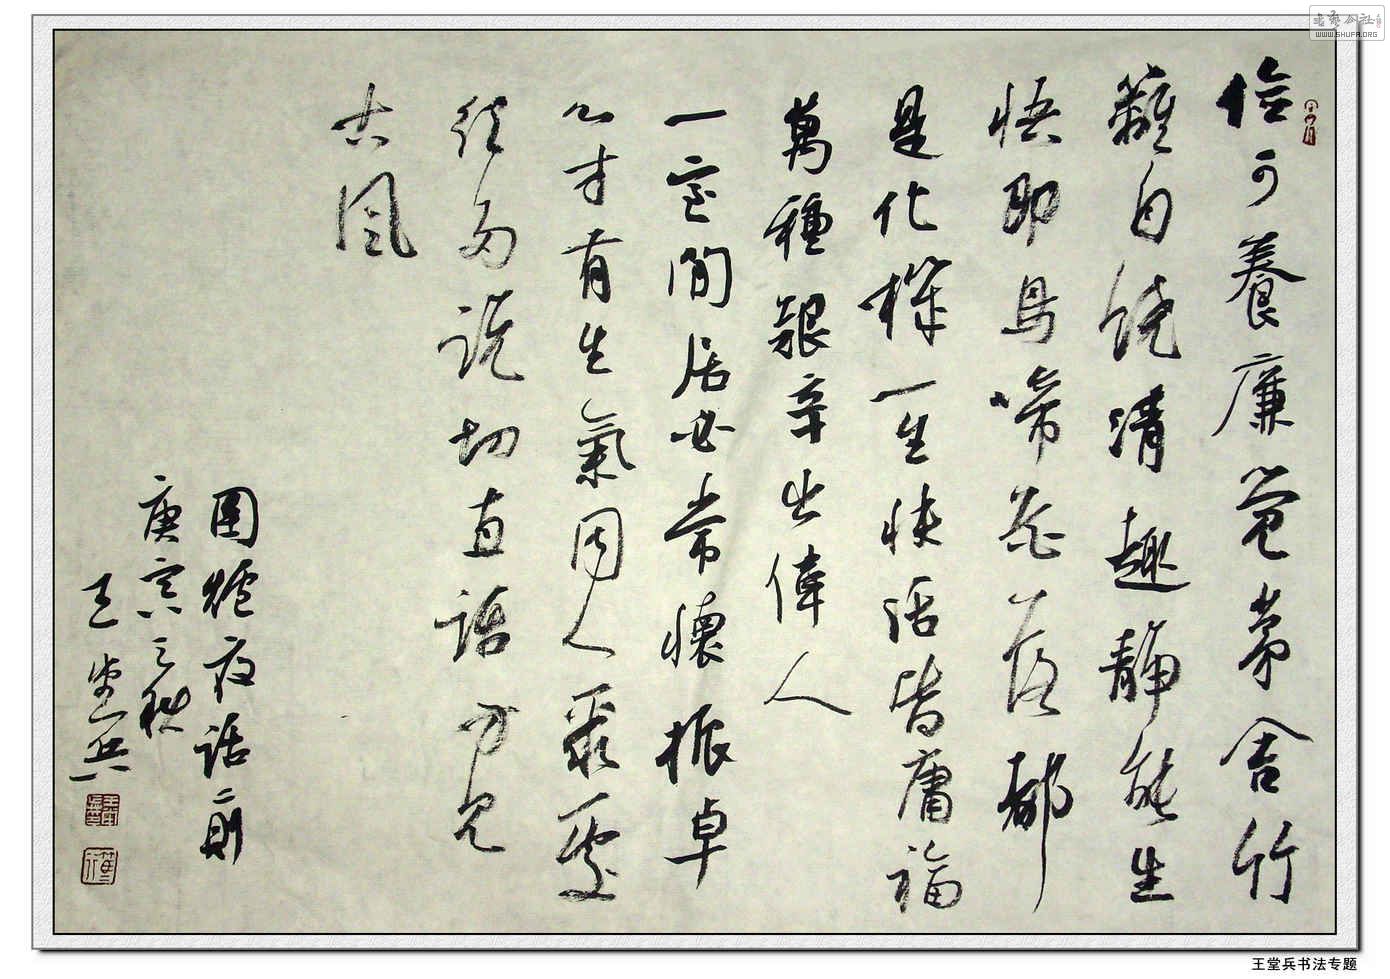 儉可養廉覺茅舍竹
籬自饒清趣靜能生
悟即鳥啼花落都
是化機一生快活皆庸福
萬種艱辛出偉人
一室閒居必常懷振卓
心才有生氣同人聚處
須多說切直話方見
古風
圍爐夜話二則
庚寅之秋
王堂兵
WWW.SHUFA.ORG
王堂兵书法专题